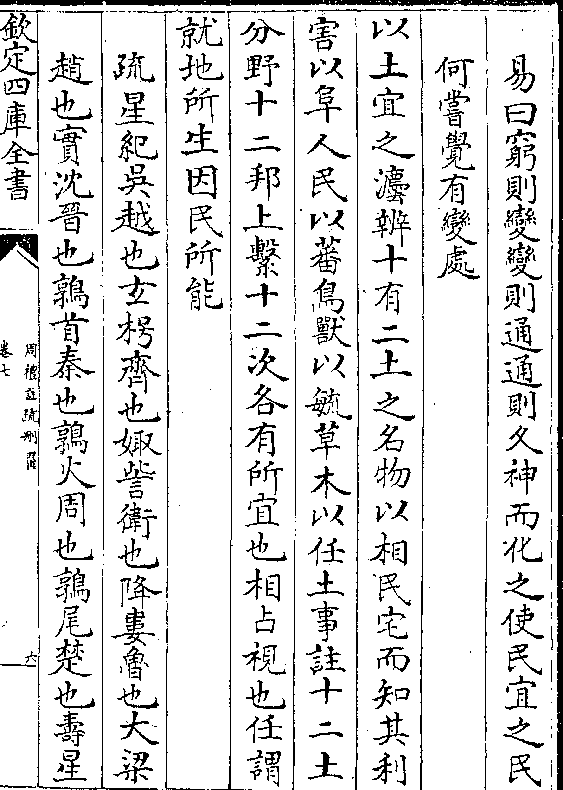 易曰窮則變變則通通則久神而化之使民宜之民
何嘗覺有變處
以土宜之灋辨十有二土之名物以相民宅而知其利
害以阜人民以蕃鳥獸以毓草木以任土事註十二土
分野十二邦上繫十二次各有所宜也相占視也任謂
就地所生因民所能
疏星紀吳越也玄枵齊也娵訾衛也降婁魯也大梁
趙也實沈晉也鶉首秦也鶉火周也鶉尾楚也壽星
欽定四庫全書
周禮註疏刪翼
卷七
六